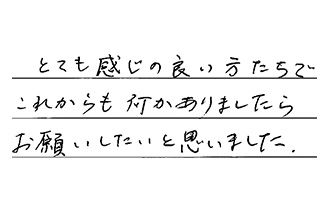 とても感じの良い方たちで
これからも何かありましたら
お願いしたいと思いました.